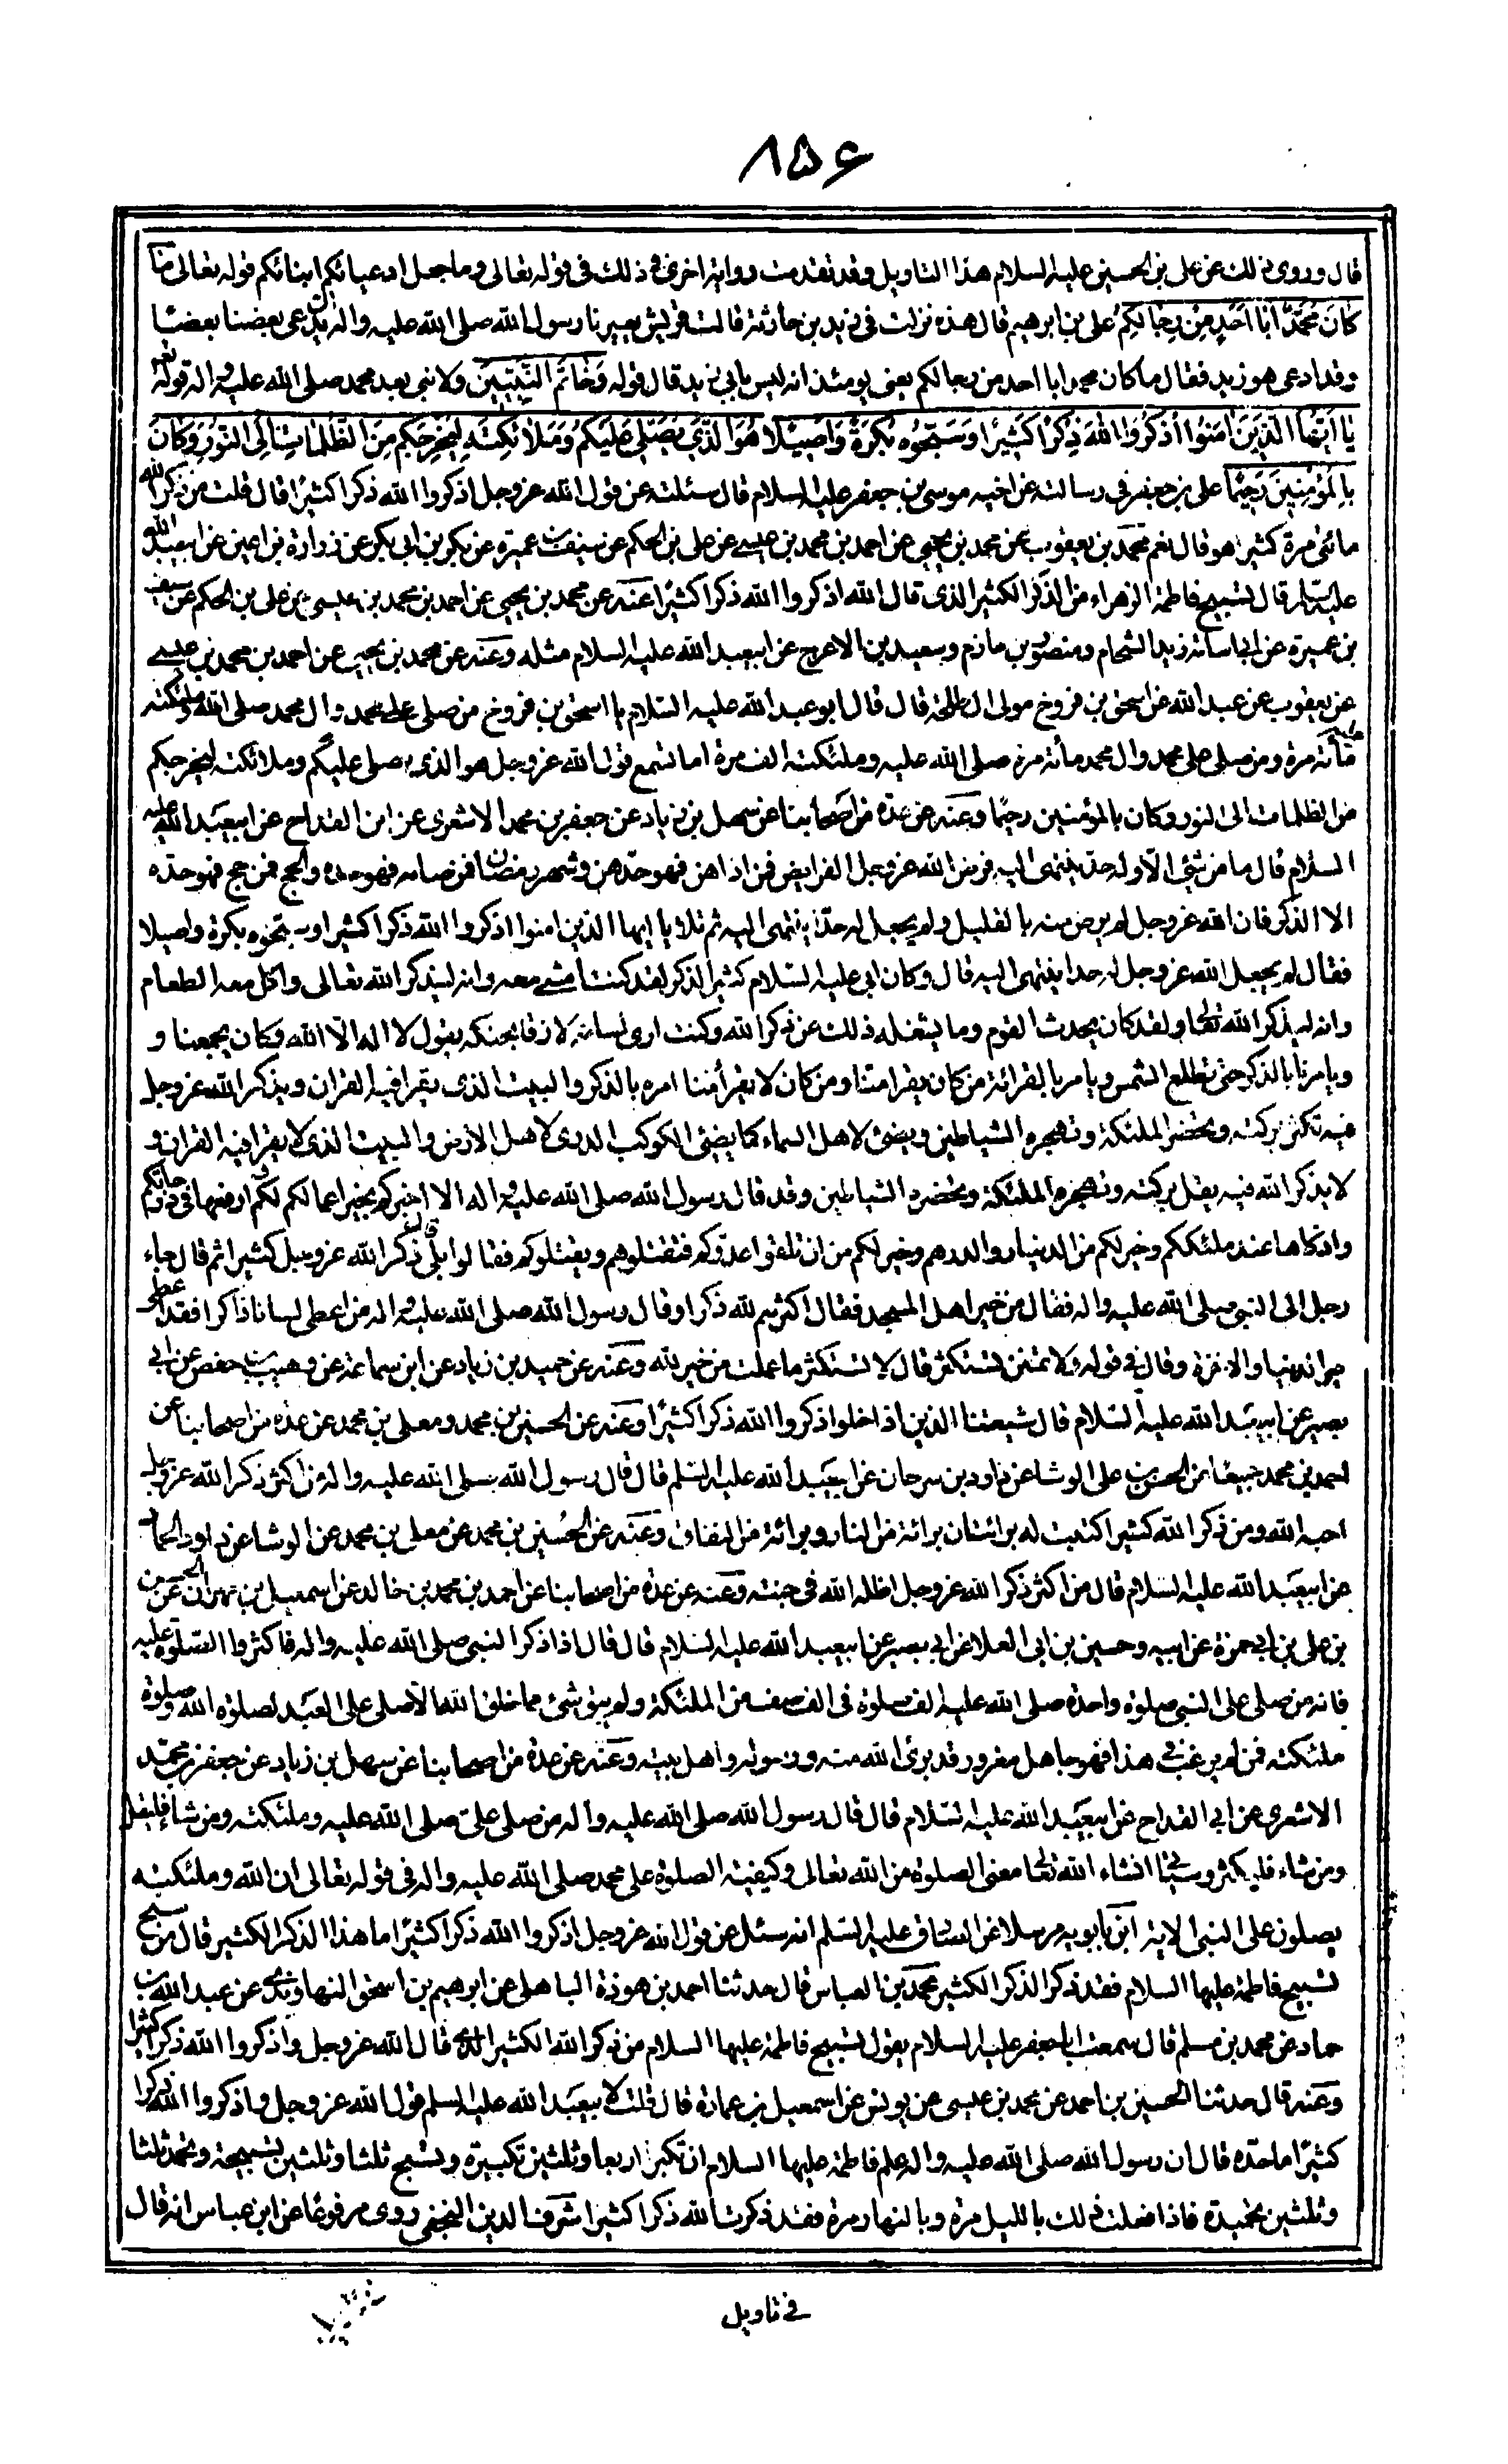 ۸۵۶
قال وروى ذلك عن على بن الحسين عليه السلام هذا التاويل وقد تقدمت رواية اخرى فى ذلك فى قوله تعالى وما جعل ادعيائكم ابنائكم قوله تعالى ما
كان محمّد ابا احد من رجالكم على بن ابرهيم قال هذه نزلت فى زيد بن حارثة قالت قريش يعيرنا رسول الله صلى الله عليه واله يدعى بعضنا بعضا
وقد ادعى هو زيد فقال ما كان محمد ابا احد من رجالكم يعنى يومئذ انه ليس بابى زيد قال قوله وخاتم النبيين ولا نبى بعد محمد صلى الله عليه واله قوله تعالى
يا ايها الذين امنوا اذكروا الله ذكرا كثيرا وسبحوه بكرة واصيلا هو الذى يصلى عليكم وملائكته ليخرجكم من الظلمات الى النور وكان
بالمؤمنين رحيما على بن جعفر فى رسالته عن اخيه موسى بن جعفر عليه السلام قال سئلته عن قول الله عز وجل اذكروا الله ذكرا كثيرا قال قلت من ذكر الله
مائتى مرة كثير هو قال نعم محمد بن يعقوب عن محمد بن يحيى عن احمد بن محمد بن عيسى عن على بن الحكم عن سيف بن عميرة عن بكر بن ابى بكر عن زرارة بن اعين عن ابيعبد الله
عليه السلام قال تسبيح فاطمة الزهراء من الذكر الكثير الذى قال الله اذكروا الله ذكرا كثيرا عنه عن محمد بن يحيى عن احمد بن محمد بن عيسى عن على بن الحكم عن سيف
بن عميرة عن ابى اسامة زيد الشحام ومنصور بن حازم وسعيد بن الاعرج عن ابيعبد الله عليه السلام مثله وعنه عن محمد بن يحيى عن احمد بن محمد بن عيسى
عن يعقوب عن عبد الله عن اسحق بن فروخ مولى ال طلحة قال قال ابو عبد الله عليه السلام يا اسحق بن فروخ من صلى على محمد وال محمد صلى الله وملئكته
عليه مأئة مرة ومن صلى على محمد وال محمد مأئة مرة صلى الله عليه وملئكته الف مرة اما تسمع قول الله عز وجل هو الذى يصلى عليكم وملائكته ليخرجكم
من الظلمات الى النور وكان بالمؤمنين رحيما وعنه عن عدة من اصحابنا عن سهل بن زياد عن جعفر بن محمد الاشعرى عن ابن القداح عن ابيعبد الله عليه
السلام قال ما من شئ الا وله حد ينتهى اليه فرض الله عز وجل الفرايض فمن اداهن فهو حدهن وشهر رمضان فمن صامه فهو حده والحج فمن حج فهو حده
الا الذكر فان الله عز وجل لم يرض منه بالقليل ولم يجعل له حدا ينتهى اليه ثم تلا يا ايها الذين امنوا اذكروا الله ذكرا كثيرا وسبحوه بكرة واصيلا
فقال لم يجعل الله عز وجل له حدا ينتهى اليه قال وكان ابى عليه السلام كثير الذكر لقد كنت امشى معه وانه ليذكر الله تعالى واكل معه الطعام
وانه ليذكر الله تعالى ولقد كان يحدث القوم وما يشغله ذلك عن ذكر الله وكنت ارى لسانه لازقا بحنكه يقول لا اله الا الله وكان يجمعنا و
ويامرنا بالذكر حتى تطلع الشمس ويامر بالقرائة من كان يقرا منا ومن كان لا يقرأ منا امره بالذكر والبيت الذى يقرا فيه القران ويذكر الله عز وجل
فيه تكثر بركته وتحضره الملئكة وتهجره الشياطين ويضئ لاهل السماء كما يضئ الكوكب الدرى لاهل الارض والبيت الذى لا يقرا فيه القران و
لا يذكر الله فيه يقل بركته وتهجره الملئكة وتحضره الشياطين وقد قال رسول الله صلى الله عليه واله الا اخبركم بخير اعمالكم لكم ارفعها فى درجاتكم
وازكاها عند مليككم وخير لكم من الدينار والدرهم وخير لكم من ان تلقوا عدوكم فتقتلوهم ويقتلوكم فقالوا بلى قال ذكر الله عز وجل كثيرا ثم قال جاء
رجل الى النبى صلى الله عليه واله فقال من خير اهل المسجد فقال اكثرهم لله ذكرا وقال رسول الله صلى الله عليه واله من اعطى لسانا ذاكرا فقد اعطى
خير الدنيا والاخرة وقال فى قوله ولا تمنن تستكثر قال لا تستكثر ما عملت من خير لله وعنه عن حميد بن زياد عن ابن سماعة عن وهيب بن حفص عن ابى
بصير عن ابيعبد الله عليه السلام قال شيعتنا الذين اذا خلوا ذكروا الله ذكرا كثيرا وعنه عن الحسين بن محمد ومعلى بن محمد عن عدة من اصحابنا عن
احمد بن محمد جميعا عن الحسن بن على الوشا عن داود بن سرحان عن ابيعبد الله عليه السلم قال قال رسول الله صلى الله عليه واله من اكثر ذكر الله عز وجل
احبه الله ومن ذكر الله كثيرا كتبت له برائتان برائة من النار وبرائة من النفاق وعنه عن الحسين بن محمد عن معلى بن محمد عن الوشا عن داود الحمار
عن ابيعبد الله عليه السلام قال من اكثر ذكر الله عز وجل اظله الله فى جنته وعنه عن عدة من اصحابنا عن احمد بن محمد بن خالد عن اسمعيل بن مهران عن الحسن
بن على بن ابى حمزة عن ابيه وحسين بن ابى العلا عن ابى بصير عن ابيعبد الله عليه السلام قال قال اذا ذكر النبى صلى الله عليه واله فاكثروا الصلوة عليه
فانه من صلى على النبى صلوة واحدة صلى الله عليه الف صلوة فى الف صف من الملئكة ولم يبق شئ مما خلق الله الا صلى على العبد لصلوة الله وصلوة
ملئكته فمن لم يرغب فى هذا فهو جاهل مغرور قد برئ الله منه ورسوله واهل بيته وعنه عن عدة من اصحابنا عن سهل بن زياد عن جعفر بن محمد
الاشعرى عن ابى القداح عن ابيعبد الله عليه السلام قال قال رسول الله صلى الله عليه واله من صلى على صلى الله عليه وملئكته ومن شاء فليقل
ومن شاء فليكثر وسياتى انشاء الله تعالى معنى الصلوة من الله تعالى وكيفية الصلوة على محمد صلى الله عليه واله فى قوله تعالى ان الله وملئكته
يصلون على النبى الاية ابن بابويه مرسلا عن الصادق عليه السلم انه سئل عن قول الله عز وجل اذكروا الله ذكرا كثيرا ما هذا الذكر الكثير قال من سبح
تسبيح فاطمة عليها السلام فقد ذكر الذكر الكثير محمد بن العباس قال حدثنا احمد بن هوذة الباهلى عن ابرهيم بن اسحق النهاوندى عن عبد الله بن
حماد عن محمد بن مسلم قال سمعت ابا جعفر عليه السلام يقول تسبيح فاطمة عليها السلام من ذكر الله الكثير الذى قال الله عز وجل واذكروا الله ذكرا كثيرا
وعنه قال حدثنا الحسين بن احمد عن محمد بن عيسى عن يونس عن اسمعيل بن عمار قال قلت لابيعبد الله عليه السلم قول الله عز وجل واذكروا الله ذكرا
كثيرا ما حده قال ان رسول الله صلى الله عليه واله علم فاطمة عليها السلام ان تكبر اربعا وثلثين تكبيرة وتسبح ثلثا وثلثين تسبيحة وتحمد ثلثا
وثلثين تحميدة فاذا فعلت ذلك بالليل مرة وبالنهار مرة فقد ذكرت الله ذكرا كثيرا شرف الدين النجفى روى مرفوعا عن ابن عباس انه قال
فى تاويل